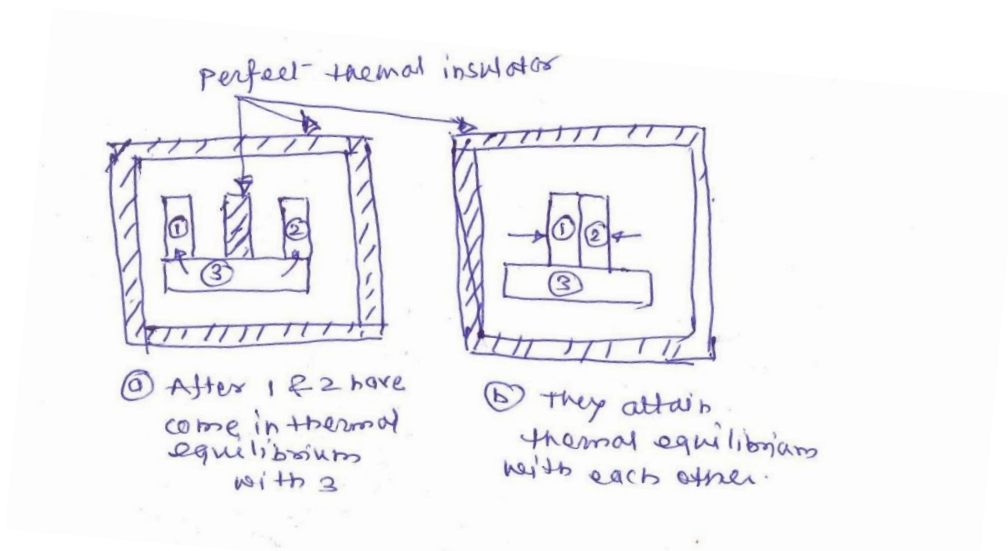 Perfect themal insulator
①
②
③
①
②
③
ⓐ After 1 & 2 have
come in thermal
equilibrium
with 3
ⓑ They attain
thermal equilibrium
with each other.